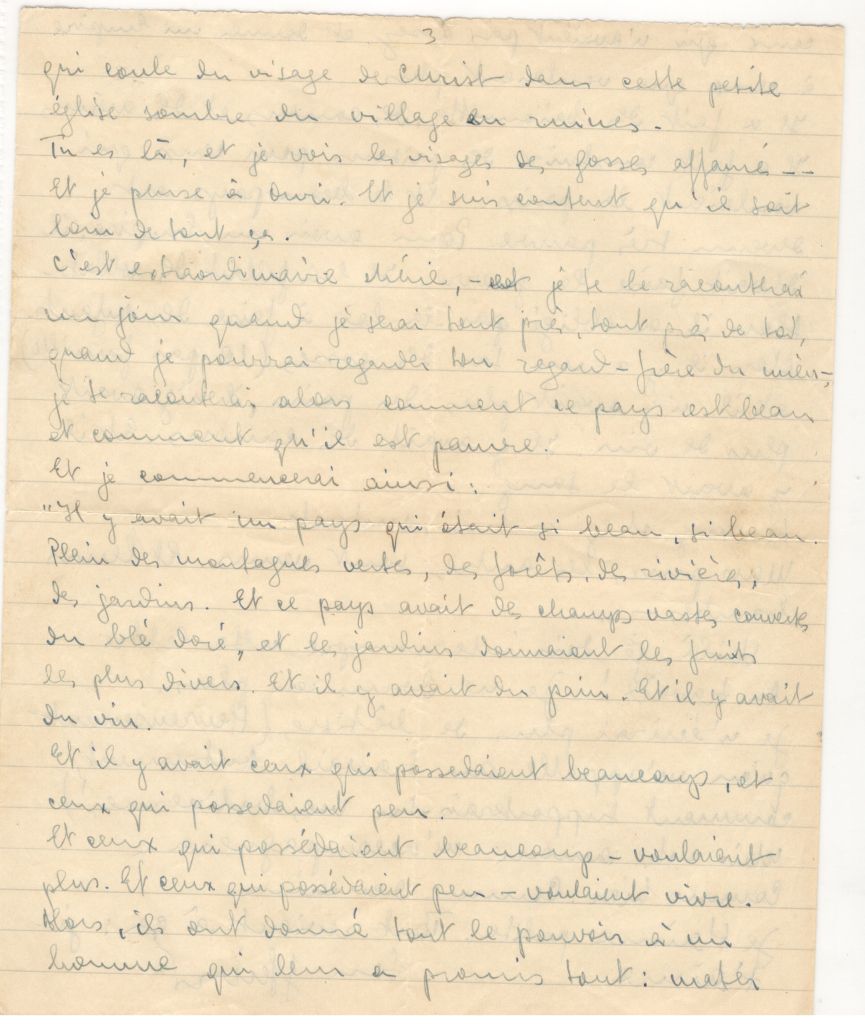 3
qui coule du visage de Christ dans cette petite
église sombre du village en ruines.
Tu es là, et je vois les visages des gosses affamé --
Et je pense à Ouri. Et je suis content qu'il soit
loin de tout ça.
C'est extraordimaire, - et je te le raconterai
un jour quand je serai tout près, tout près de toi,
quand je pourrai regarder ton regard - frère du mien -,
je te raconterai alors comment ce pays est beau
et comment qu'il est pauvre.
Et je commencerai ainsi :
"Il y avait un pays qui était si beau, si beau.
Plein des montagnes vertes, des forêts, des rivières,
des jardins. Et ce pays avait des champs vastes couverts
du blé doré, et les jardins donnaient les fruits
les plus divers. Et il y avait du pain. Et il y avait
du vin.
Et il y avait ceux qui possedaient beaucoup, et
ceux qui possedaient peu.
Et ceux qui possédaient beaucoup - voulaient
plus. Et ceux qui possédaient peu - voulaient vivre.
Alors, ils ont donné tout le pouvoir à un
homme qui leur a promis tout : mater